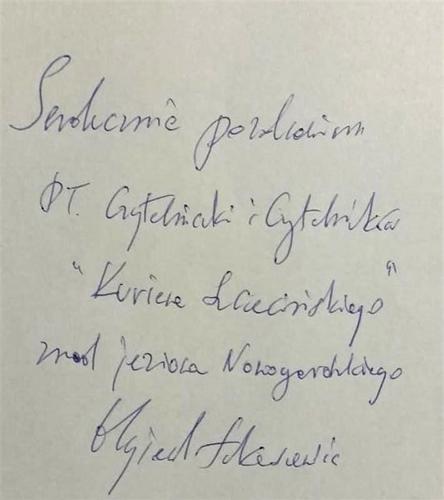 Serdecznie pozdrawiam
PT. Czytelniczki i Czytelników
"Kuriera Szczecińskiego"
znad jeziora Nowogardzkiego
Wojciech